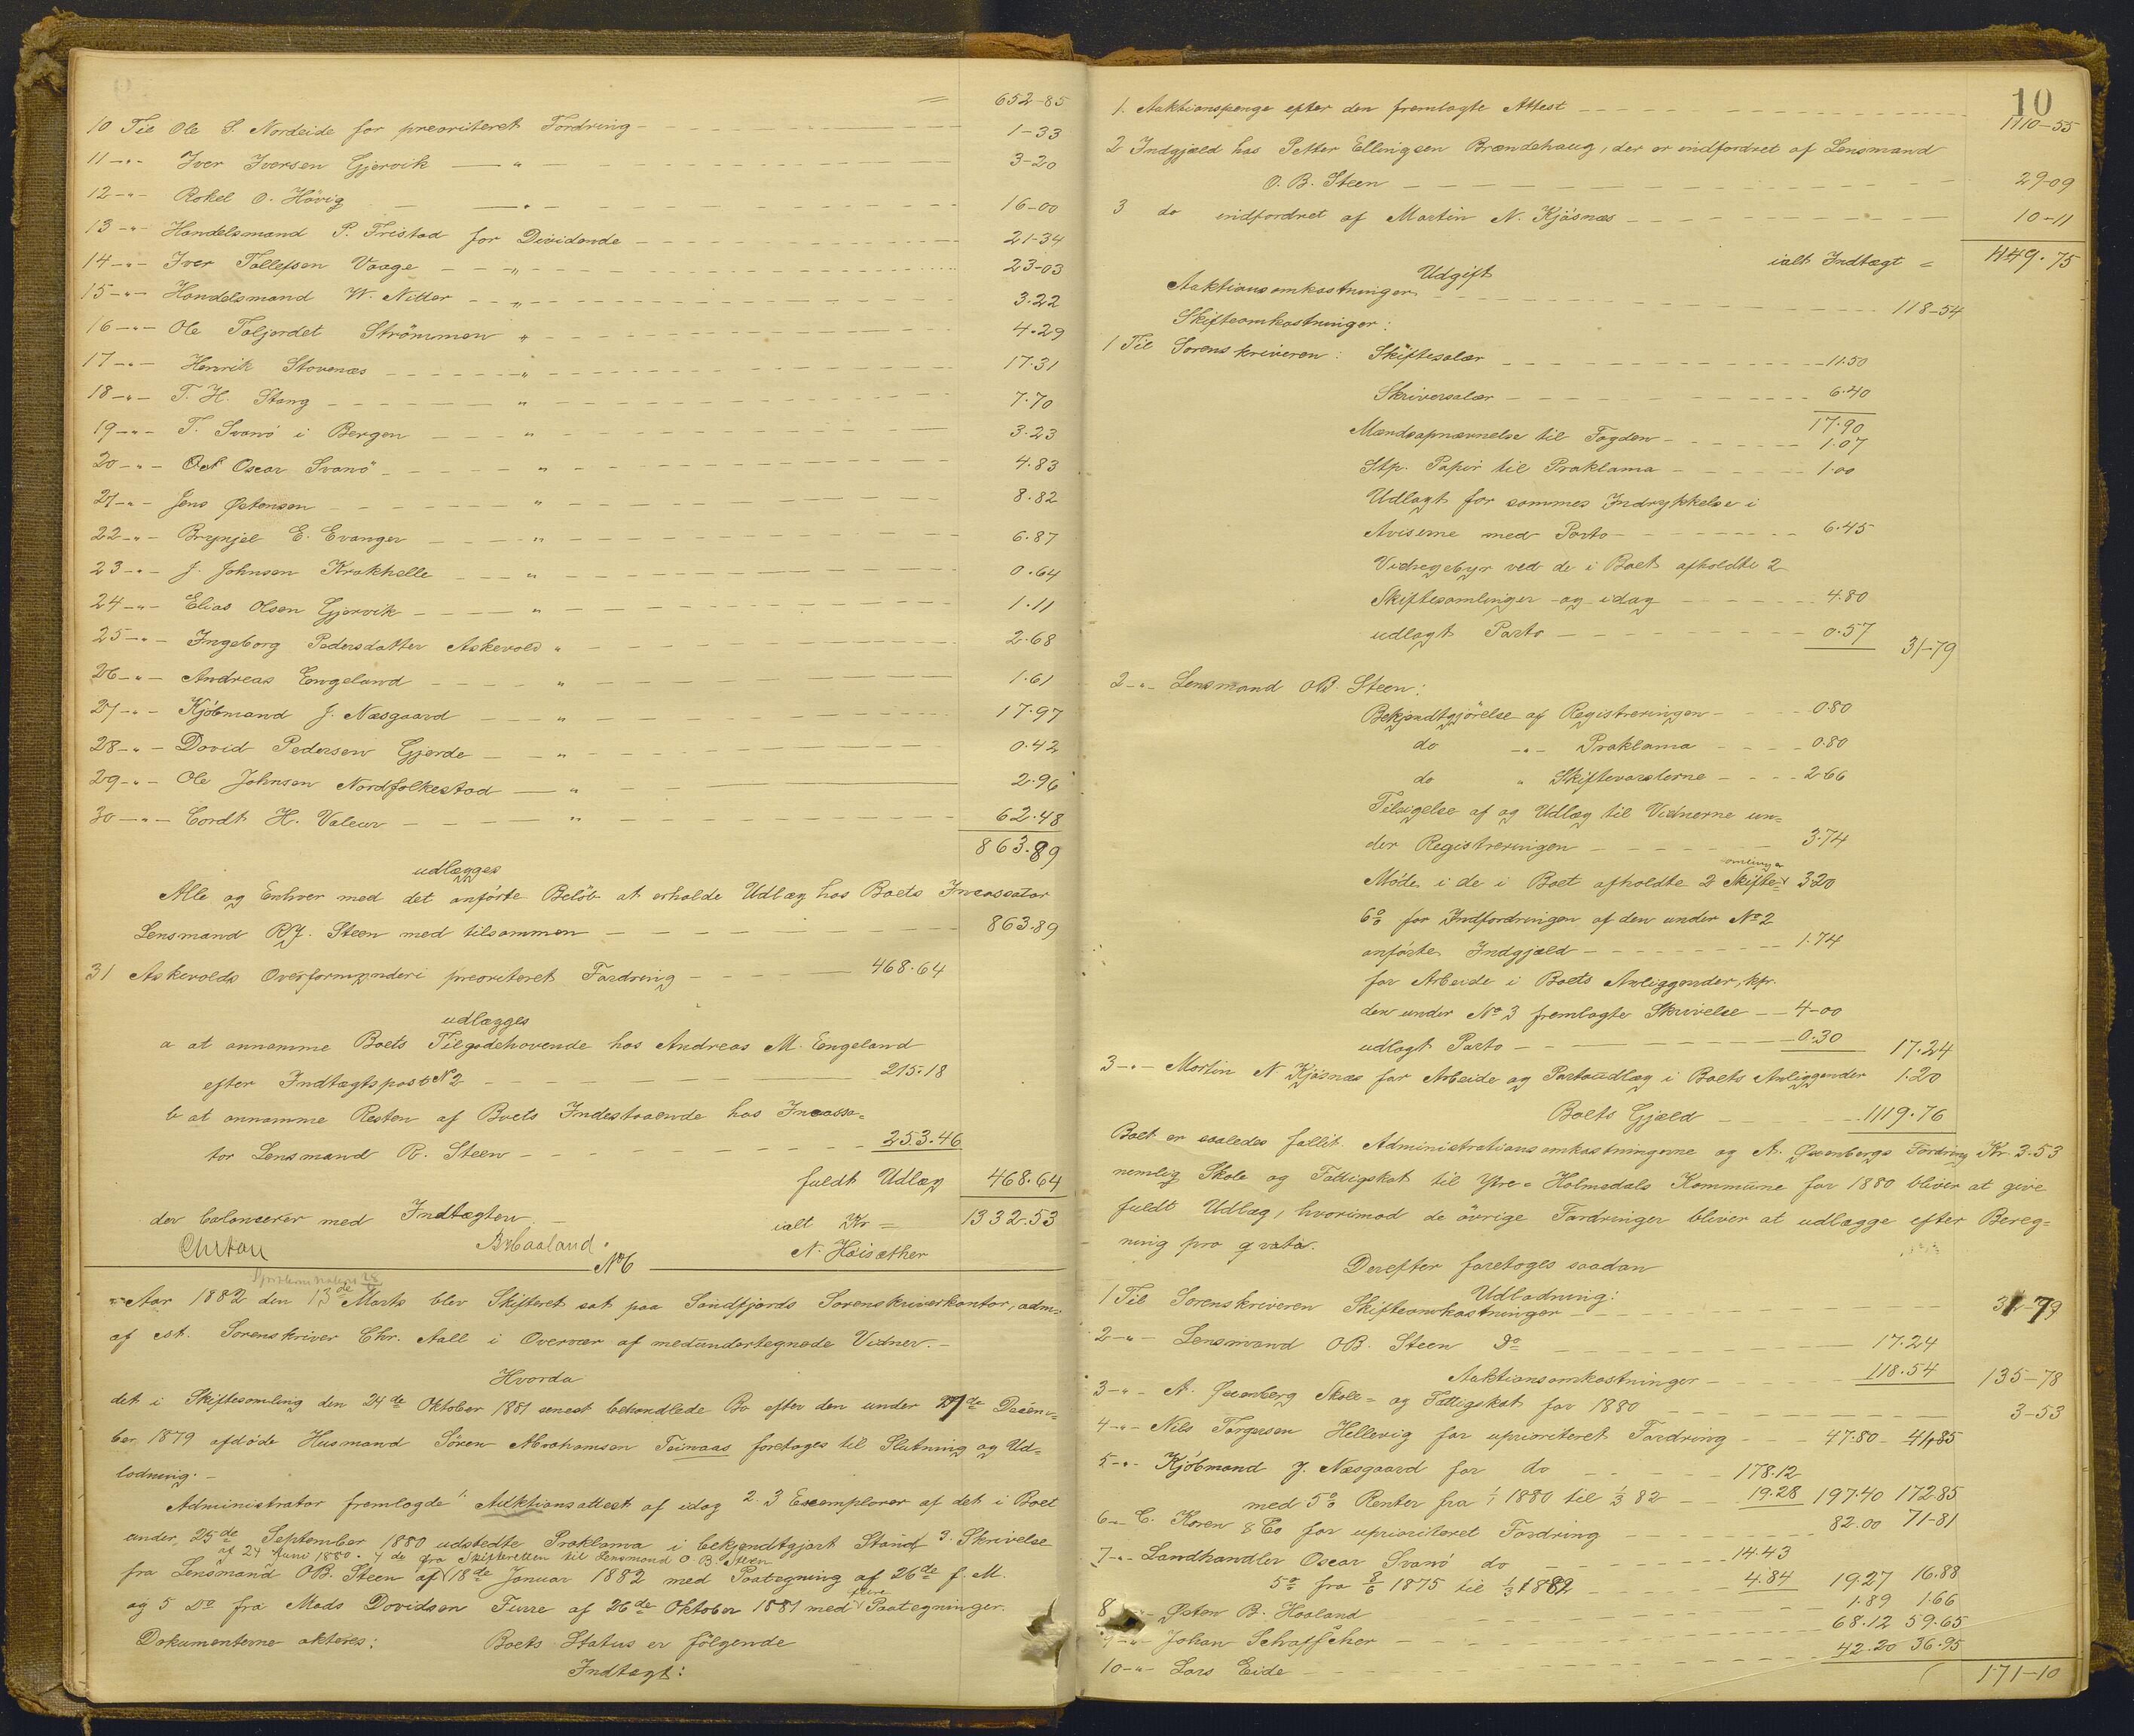 = 652-85
10 Til Ole S. Nordeide for preoriteret Fordring 1-33
11 -"- Iver Iversen Gjervik -"- 3-20
12 -"- Rakel O. Hövig -"- 16-00
13 -"- Handelsmand P. Tristad for Dividende 21-34
14 -"- Iver Tollefsen Vaage " 23-03
15 -"- Handelsmand W. Nitter " 3.22
16 -"- Ole Taljordet Strömmen " 4.29
17 -"- Henrik Stovenæs " 17.31
18 -"- T. H. Stang " 7.70
19 -"- T. Svanö i Bergen " 3.23
20 -"- Oscar Svanö " 4.83
21 -"- Jens Østensen " 8.82
22 -"- Brynjel E. Evanger " 6.87
23 -"- J. Johnsen Krakhelle " 0.64
24 -"- Elias Olsen Gjervik " 1.11
25 -"- Ingeborg Pedersdatter Askevold " 2.68
26 -"- Andreas Engeland " 1.61
27 -"- Kjöbmand J. Næsgaard " 17.97
28 -"- David Pedersen Gjerde " 0.42
29 -"- Ole Johnsen Nordfolkestad " 2.96
30 -"- Cordt H. Valeur " 62.48
863.89
udlægges
Alle og Enhver med det anförte Belöb at erholde Udlæg hos Boets Incassator
Lensmand R. Steen med tilsammen 863.89
31 Askevolds Overformynderi preoriteret Fordring 468.64
udlægges
a at annamme Boets Tilgodehavende hos Andreas M. Engeland
efter Indtægtspost No 2 215.18
b at annamme Resten af Boets Indestaaende hos Incassa-
tor Lensmand R. Steen 253.46
fuldt Udlæg 468.64
der balancerer med Indtægten. ialt Kr = 1332.53
B. Haaland. N. Höisæther
No 6
Aar 1882 den 13de Marts blev Skifteret sat paa Söndfjords Sorenskriverkontor, adm.
af cst. Sorenskriver Chr. Aall i Overvær af medundertegnede Vidner. -
Hvorda
det i Skiftesamling den 24de Oktober 1881 senest behandlede Bo efter den under 27de Decem-
ber 1879 afdöde Husmand Sören Abrahamsen Teinaas foretoges til Slutning og Ud-
lodning. -
Administrator fremlagde 1. Auktionsattest af idag 2. 3 Exemplarer af det i Boet
under 25de September 1880 udstedte Proklama i bekjendtgjort Stand 3. Skrivelse
af 24 Juni 1880. 4 do fra Skifteretten til Lensmand O B. Steen
fra Lensmand OB. Steen af 18de Januar 1882 med Paategning af 26de f. M.
og 5 Do fra Mads Davidsen Furre af 26de Oktober 1881 med flere Paategninger.
Dokumenterne akteres: Boets Status er fölgende
Indtægt:
10
1. Auktionspenge efter den fremlagte Attest 1110-55
2 Indgjæld hos Petter Ellingsen Brændehaug, der er indfordret af Lensmand
O. B. Steen 29-09
3 do indfordret af Martin N. Kjösnæs 10-11
ialt Indtægt = 1149.75
Udgift
Auktionsomkostninger 118-54
Skifteomkostninger:
1 Til Sorenskriveren: Skiftesalær 11.50
Skriversalær 6.40
17.90
Mandsopnævnelse til Fogden 1.07
Stp. Papir til Proklama 1.00
Udlagt for sammes Indrykkelse i
Aviserne med Porto 6.45
Vidnegebyr ved de i Boet afholdte 2
Skiftesamlinger og idag 4.80
udlagt Porto 0.57 31-79
2 -"- Lensmand OB. Steen:
Bekjendtgjörelse af Registreringen 0.80
do -"- Proklama 0.80
do " Skiftevarslerne 2.66
Tilsigelse af og Udlæg til Vidnerne un-
der Registreringen 3.74
Möde i de i Boet afholdte 2 Skiftesamlinger 3.20
6% for Indfordringen af den under No 2
anförte Indgjæld 1.74
for Arbeide i Boets Anliggender, kfr.
den under No 3 fremlagte Skrivelse 4-00
udlagt Porto 0.30 17.24
3 -"- Martin N Kjösnæs for Arbeide og Portoudlæg i Boets Anliggender 1.20
Boets Gjæld 1119.76
Boet er saaledes fallit. Administrationsomkostningerne og A. Øxenbergs Fordring Kr. 3.53
nemlig Skole og Fattigskat til Ytre-Holmedals Kommune for 1880 bliver at give
fuldt Udlæg, hvorimod de övrige Fordringer bliver at udlægge efter Bereg-
ning pro qvota.
Derefter foretoges saadan
Udlodning:
1 Til Sorenskriveren Skifteomkostninger 31-79
2 -"- Lensmand OB. Steen Do 17.24
Auktionsomkostninger 118.54 135-78
3 -"- A. Øxenberg Skole- og Fattigskat for 1880 3-53
4 -"- Nils Torgersen Hellevig for uprioriteret Fordring 47.80 41.85
5 -"- Kjöbmand J. Næsgaard for do 178.12
med 5% Renter fra 1/1 1880 til 1/3 82 19.28 197.40 172.85
6 -"- C. Koren & Co for uprioriteret Fordring 82.00 71-81
7 -"- Landhandler Oscar Svanö do 14.43
5% fra 8/6 1875 til 1/3 1882 4.84 19.27 16.88
8 -"- Østen B. Haaland 1.89 1.66
9 -"- Johan Schaffscher 68.12 59.65
10 -"- Lars Eide 42.20 36.95
171-10